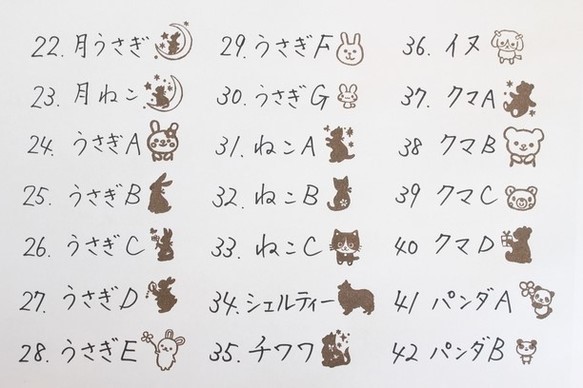 22. 月うさぎ
23. 月ねこ
24. うさぎA
25. うさぎB
26. うさぎC
27. うさぎD
28. うさぎE
29. うさぎF
30. うさぎG
31. ねこA
32. ねこB
33. ねこC
34. シェルティー
35. チワワ
36. イヌ
37. クマA
38 クマB
39 クマC
40 クマD
41 パンダA
42 パンダB